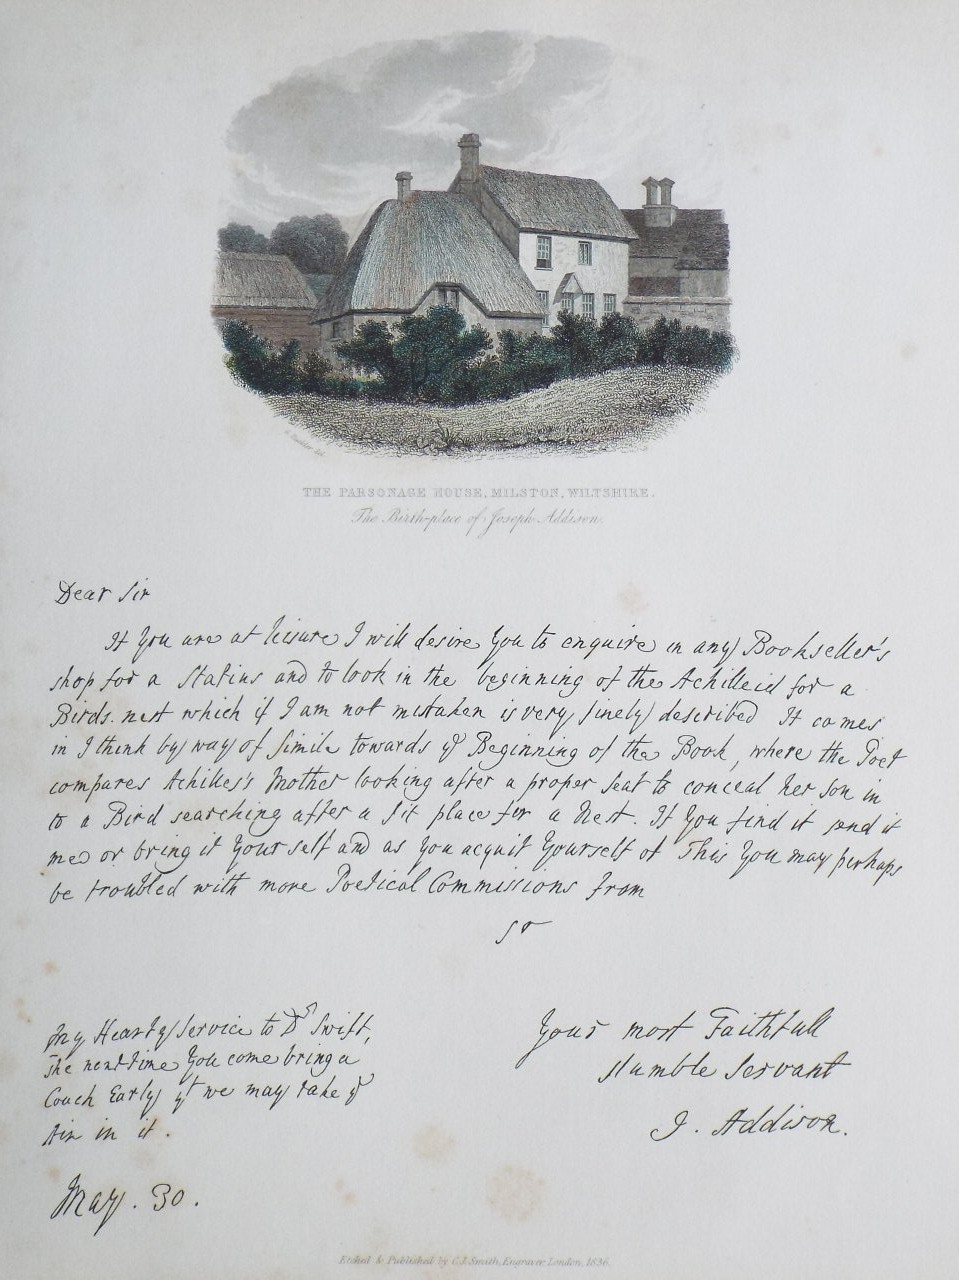 THE PARSONAGE HOUSE, MILSTON, WILTSHIRE.
The Birth-place of Joseph Addison.
Dear Sir
If You are at leisure I will desire You to enquire in any Bookseller's
shop for a Statius and to look in the beginning of the Achilleid for a
Birds-nest which if I am not mistaken is very finely described It comes
in I think by way of Simile towards yͤ Beginning of the Book, where the Poet
compares Achilles's Mother looking after a proper Seat to conceal her son in
to a Bird searching after a fit place for a Nest. If You find it send it
me or bring it Your self and as You acquit Yourself of This You may perhaps
be troubled with more Poetical Commissions from
Sr
Your most Faithfull
Humble Servant
J. Addison.
My Hearty Service to Dr Swift,
The next time You come bring a
Coach Early yt we may take yͤ
Air in it.
May. 30.
Etched & Published by C.J. Smith, Engraver, London, 1836.